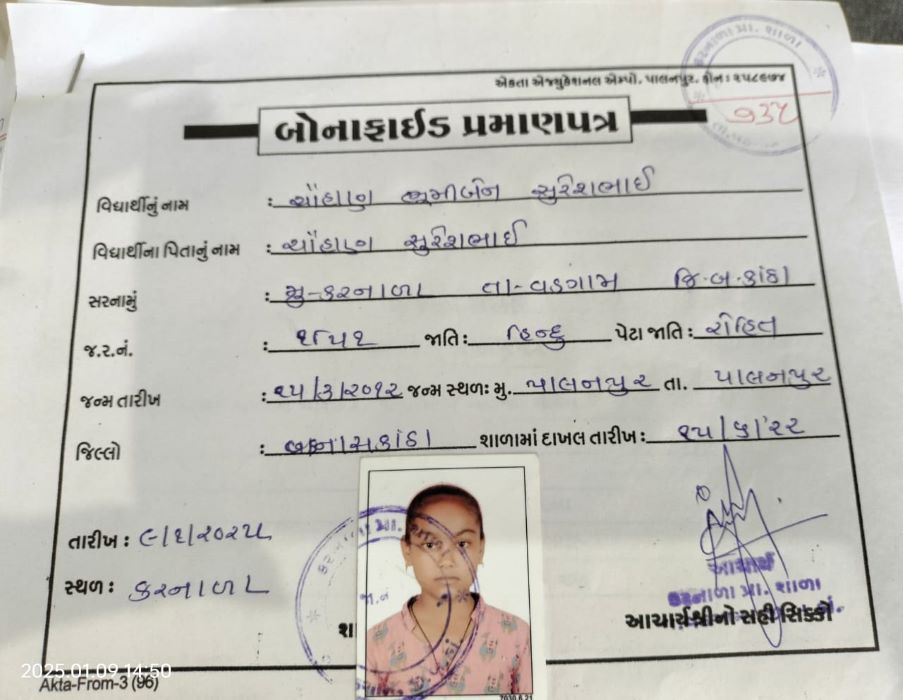 કરનાળા પ્રા. શાળા
એકતા એજ્યુકેશનલ એમ્પો. પાલનપુર. ફોન : ૨૫૮૯૭૪
૧૩૫
બોનાફાઈડ પ્રમાણપત્ર
વિદ્યાર્થીનું નામ : ચૌહાણ ભુમીબેન સુરેશભાઈ
વિદ્યાર્થીના પિતાનું નામ : ચૌહાણ સુરેશભાઈ
સરનામું : મુ-કરનાળા તા-વડગામ જિ.બ.કાંઠા
જ.ર.નં. : ૧૮૫૧ જાતિ : હિન્દુ પેટા જાતિ : રોહિત
જન્મ તારીખ : ૨૫/૩/૨૦૧૨ જન્મ સ્થળ: મુ. પાલનપુર તા. પાલનપુર
જિલ્લો : બનાસકાંઠા શાળામાં દાખલ તારીખ : ૨૫/૬/૨૨
તારીખ : ૯/૧/૨૦૨૫
સ્થળ : કરનાળા
આચાર્ય
કરનાળા પ્રા. શાળા
આચાર્યશ્રીનો સહી સિક્કો
2025.01.09 14:50
Akta-From-3 (96)